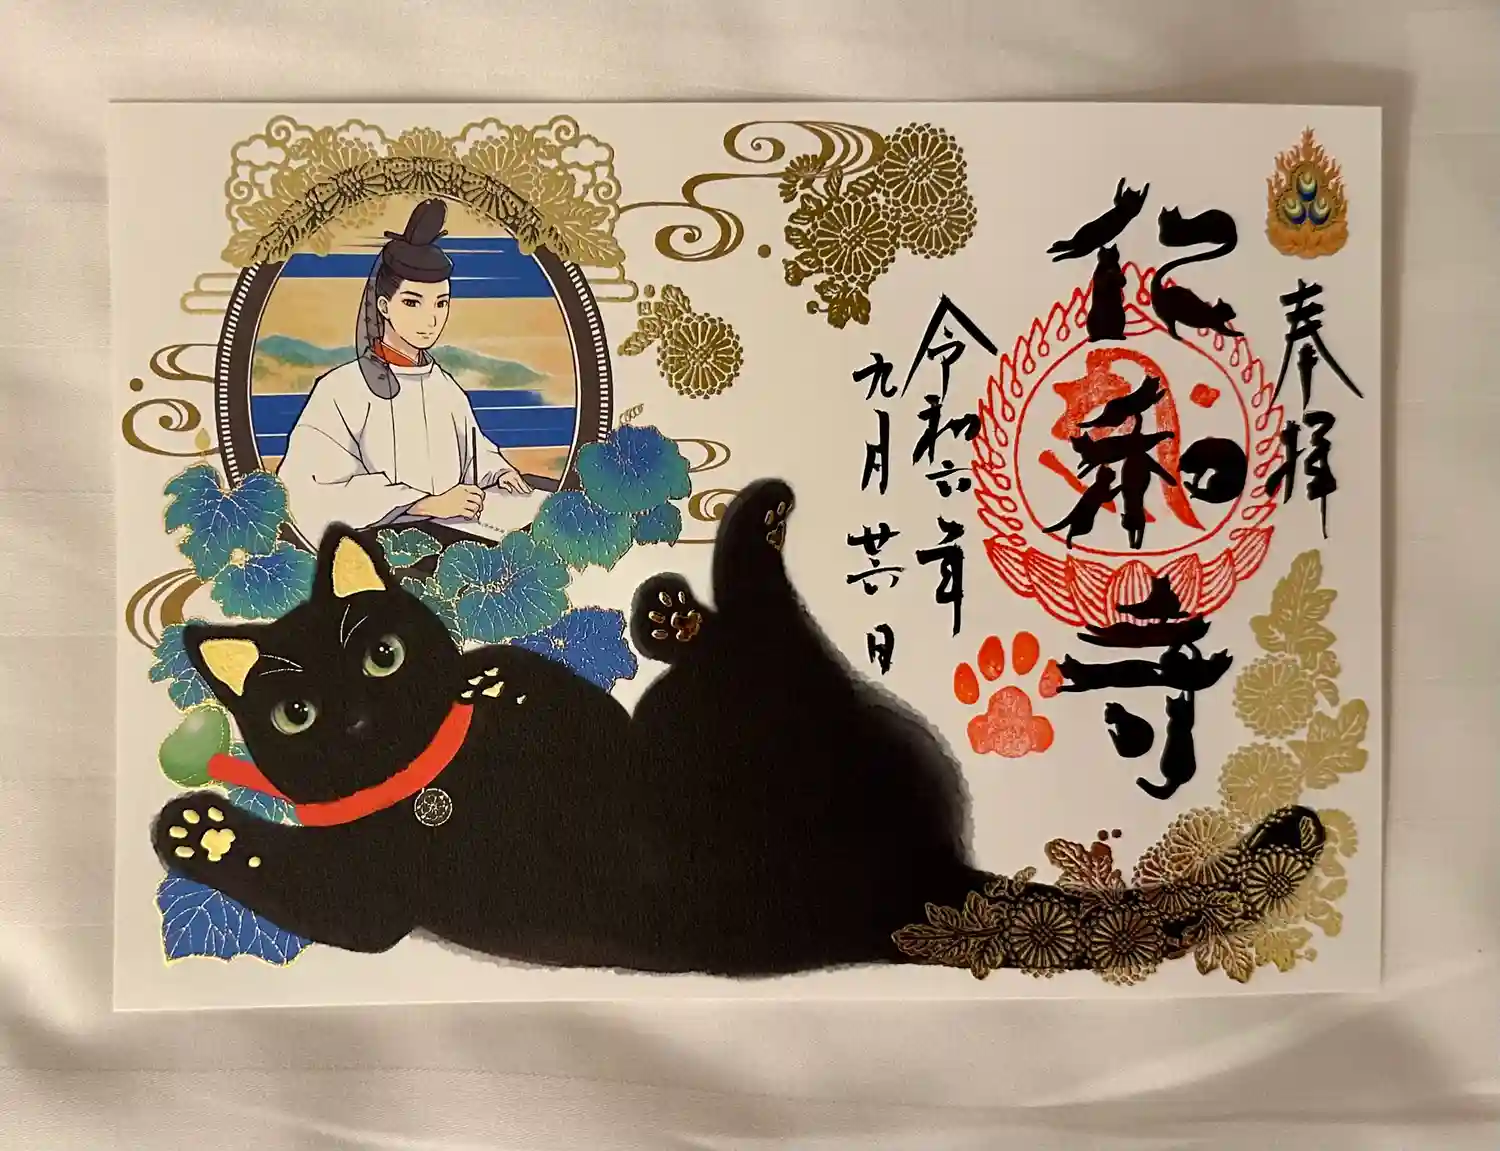 奉拝
仁和寺
令和六年
九月廿六日